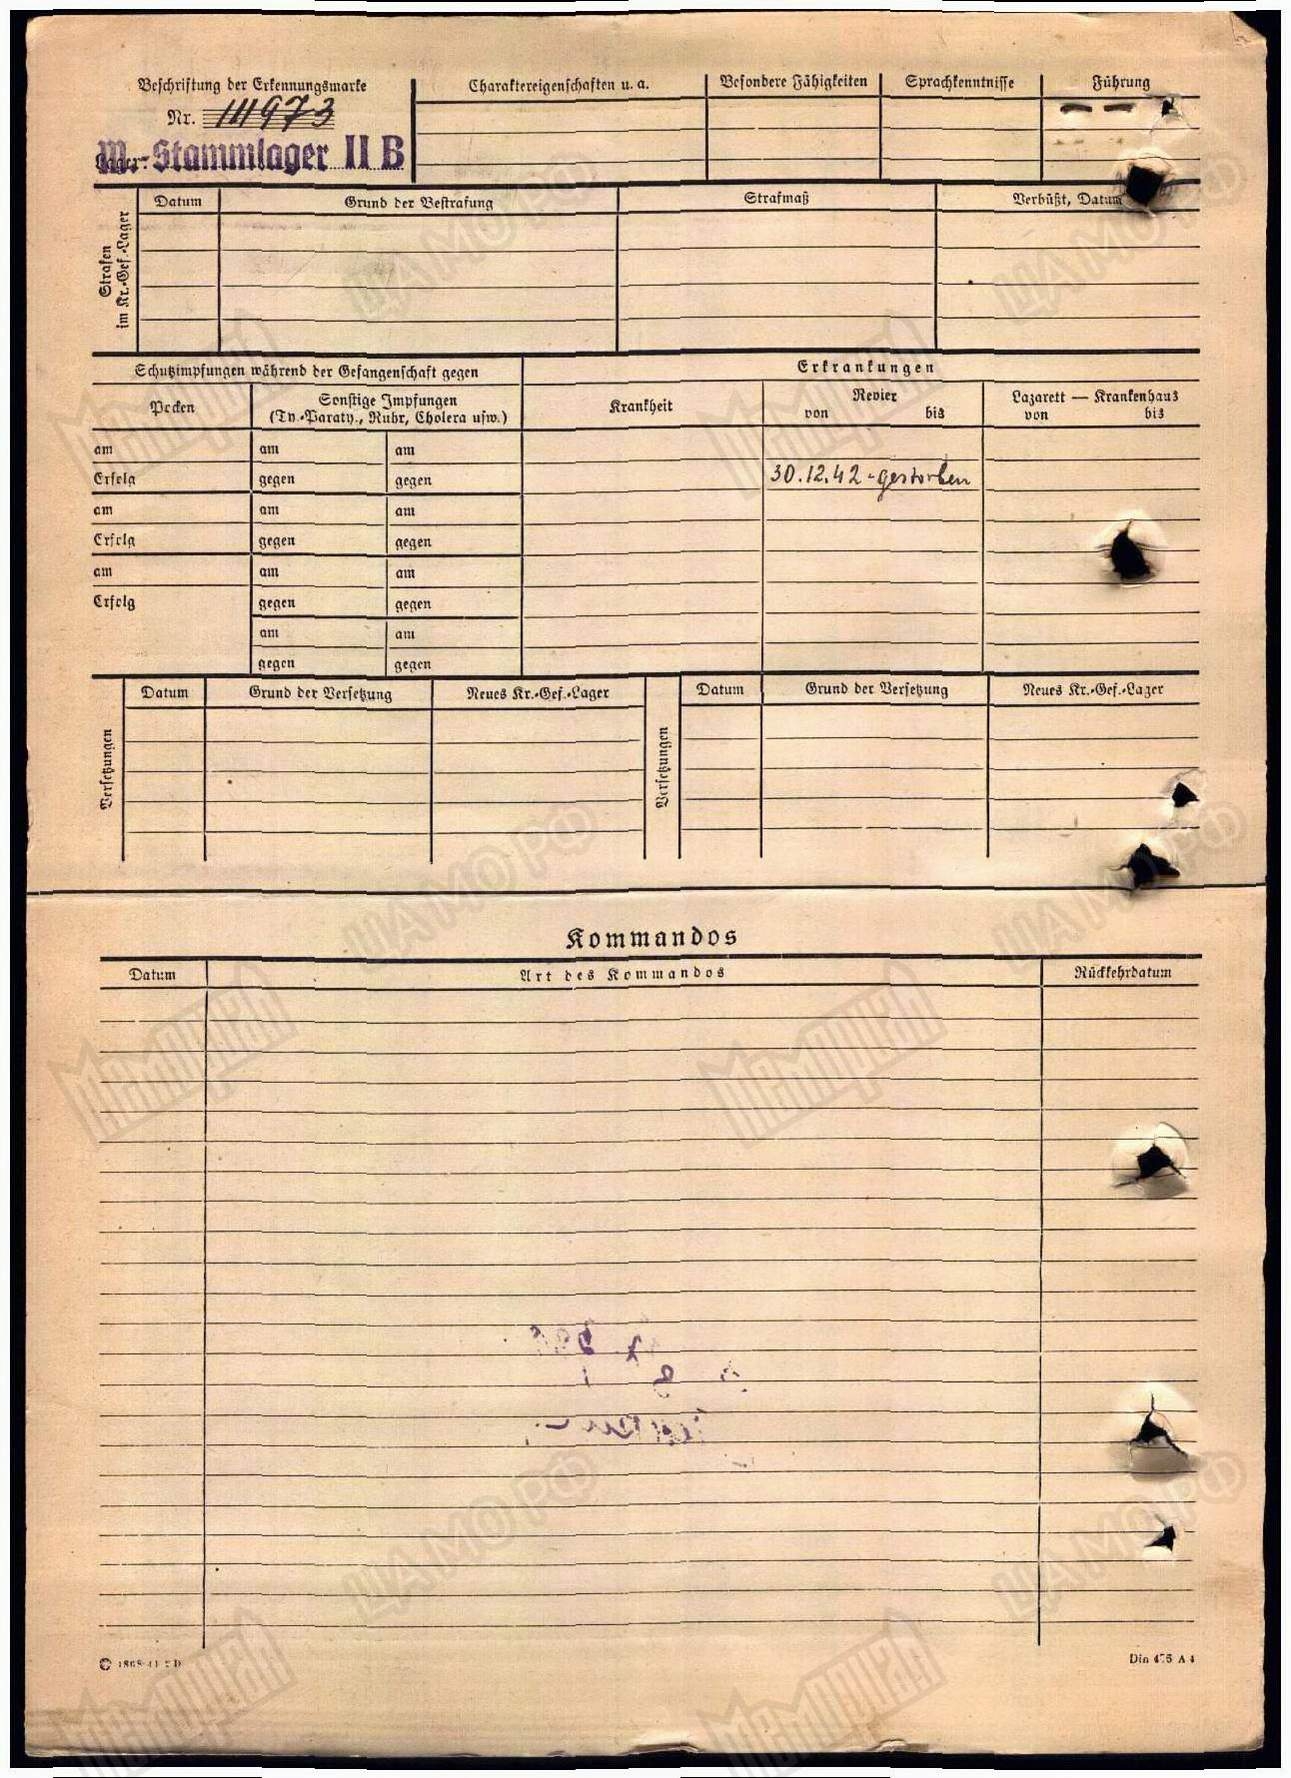 Beschriftung der Erkennungsmarke
Nr. 111973
Lager: M.-Stammlager II B
Charaktereigenschaften u. a.
Besondere Fähigkeiten
Sprachkenntnisse
Führung
— —
Strafen im Kr.-Gef.-Lager
Datum
Grund der Bestrafung
Strafmaß
Verbüßt, Datum
Schutzimpfungen während der Gefangenschaft gegen
Erkrankungen
Pocken
Sonstige Impfungen
(Ty.-Paraty., Ruhr, Cholera usw.)
Krankheit
Revier
von bis
Lazarett — Krankenhaus
von bis
am am am
Erfolg gegen gegen
30.12.42 - gestorben
am am am
Erfolg gegen gegen
am am am
Erfolg gegen gegen
am am
gegen gegen
Versetzungen
Datum
Grund der Versetzung
Neues Kr.-Gef.-Lager
Versetzungen
Datum
Grund der Versetzung
Neues Kr.-Gef.-Lager
Kommandos
Datum
Art des Kommandos
Rückkehrdatum
Din 476 A 4
Мемориал
ЦАМО РФ